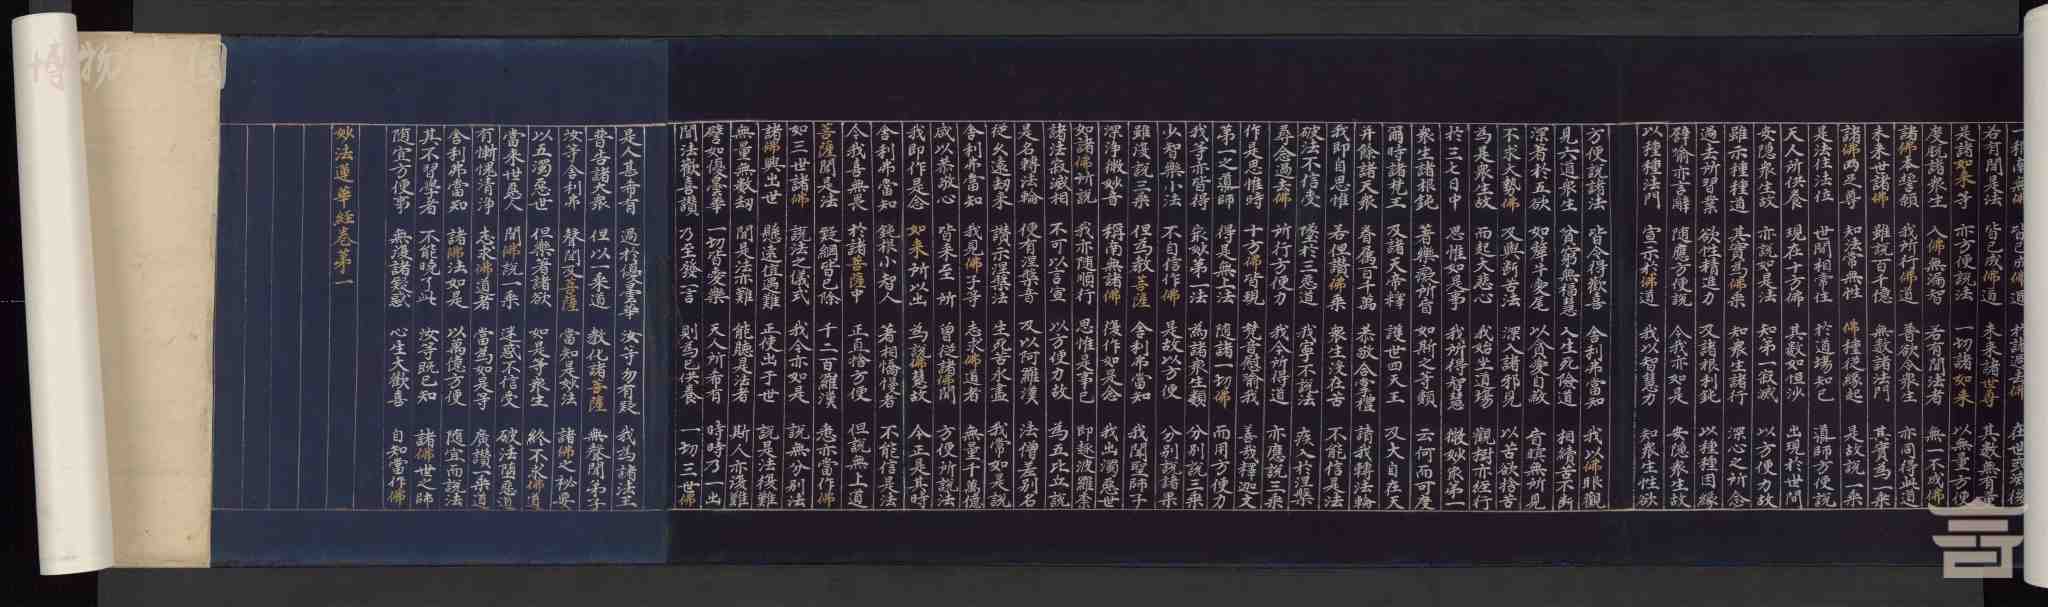 一稱南無佛 皆已成佛道 於諸過去佛 在世或滅後
若有聞是法 皆已成佛道 未來諸世尊 其數無有量
是諸如來等 亦方便說法 一切諸如來 以無量方便
度脫諸眾生 入佛無漏智 若有聞法者 無一不成佛
諸佛本誓願 我所行佛道 普欲令眾生 亦同得此道
未來世諸佛 雖說百千億 無數諸法門 其實為一乘
諸佛兩足尊 知法常無性 佛種從緣起 是故說一乘
是法住法位 世間相常住 於道場知已 導師方便說
天人所供養 現在十方佛 其數如恒沙 出現於世間
安隱眾生故 亦說如是法 知第一寂滅 以方便力故
雖示種種道 其實為佛乘 知眾生諸行 深心之所念
過去所習業 欲性精進力 及諸根利鈍 以種種因緣
譬喻亦言辭 隨應方便說 今我亦如是 安隱眾生故
以種種法門 宣示於佛道 我以智慧力 知眾生性欲
方便說諸法 皆令得歡喜 舍利弗當知 我以佛眼觀
見六道眾生 貧窮無福慧 入生死險道 相續苦不斷
深著於五欲 如犛牛愛尾 以貪愛自蔽 盲瞑無所見
不求大勢佛 及與斷苦法 深入諸邪見 以苦欲捨苦
為是眾生故 而起大悲心 我始坐道場 觀樹亦經行
於三七日中 思惟如是事 我所得智慧 微妙最第一
眾生諸根鈍 著樂癡所盲 如斯之等類 云何而可度
爾時諸梵王 及諸天帝釋 護世四天王 及大自在天
并餘諸天眾 眷屬百千萬 恭敬合掌禮 請我轉法輪
我即自思惟 若但讚佛乘 眾生沒在苦 不能信是法
破法不信受 墜於三惡道 我寧不說法 疾入於涅槃
尋念過去佛 所行方便力 我今所得道 亦應說三乘
作是思惟時 十方佛皆現 梵音慰喻我 善哉釋迦文
第一之導師 得是無上法 隨諸一切佛 而用方便力
我等亦皆得 最妙第一法 為諸眾生類 分別說三乘
少智樂小法 不自信作佛 是故以方便 分別說諸果
雖復說三乘 但為教菩薩 舍利弗當知 我聞聖師子
深淨微妙音 稱南無諸佛 復作如是念 我出濁惡世
如諸佛所說 我亦隨順行 思惟是事已 即趣波羅柰
諸法寂滅相 不可以言宣 以方便力故 為五比丘說
是名轉法輪 便有涅槃音 及以阿羅漢 法僧差別名
從久遠劫來 讚示涅槃法 生死苦永盡 我常如是說
舍利弗當知 我見佛子等 志求佛道者 無量千萬億
咸以恭敬心 皆來至 所 曾從諸佛聞 方便所說法
我即作是念 如來所以出 為說佛慧故 今正是其時
舍利弗當知 鈍根小智人 著相憍慢者 不能信是法
今我喜無畏 於諸菩薩中 正直捨方便 但說無上道
菩薩聞是法 疑網皆已除 千二百羅漢 悉亦當作佛
如三世諸佛 說法之儀式 我今亦如是 說無分別法
諸佛興出世 懸遠值遇難 正使出于世 說是法復難
無量無數劫 聞是法亦難 能聽是法者 斯人亦復難
譬如優曇華 一切皆愛樂 天人所希有 時時乃一出
聞法歡喜讚 乃至發一言 則為已供養 一切三世佛
是人甚希有 過於優曇華 汝等勿有疑 我為諸法王
普告諸大眾 但以一乘道 教化諸菩薩 無聲聞弟子
汝等舍利弗 聲聞及菩薩 當知是妙法 諸佛之秘要
以五濁惡世 但樂著諸欲 如是等眾生 終不求佛道
當來世惡人 聞佛說一乘 迷惑不信受 破法墮惡道
有慚愧清淨 志求佛道者 當為如是等 廣讚一乘道
舍利弗當知 諸佛法如是 以萬億方便 隨宜而說法
其不習學者 不能曉了此 汝等既已知 諸佛世之師
隨宜方便事 無復諸疑惑 心生大歡喜 自知當作佛
妙法蓮華經卷第一